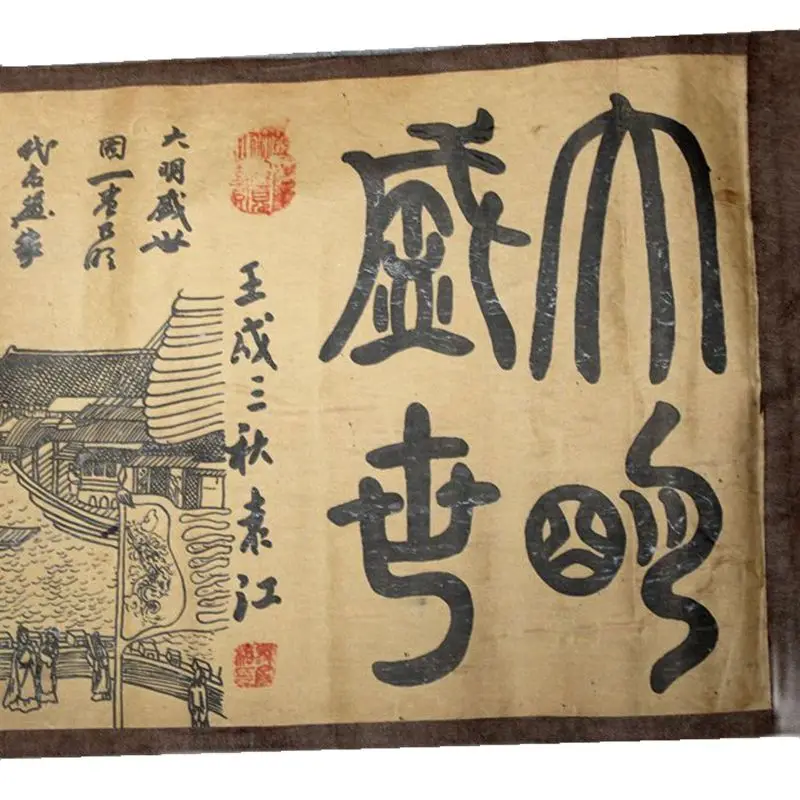 大明
盛世
壬成三秋袁江
大明盛世
图一卷明
代名画家